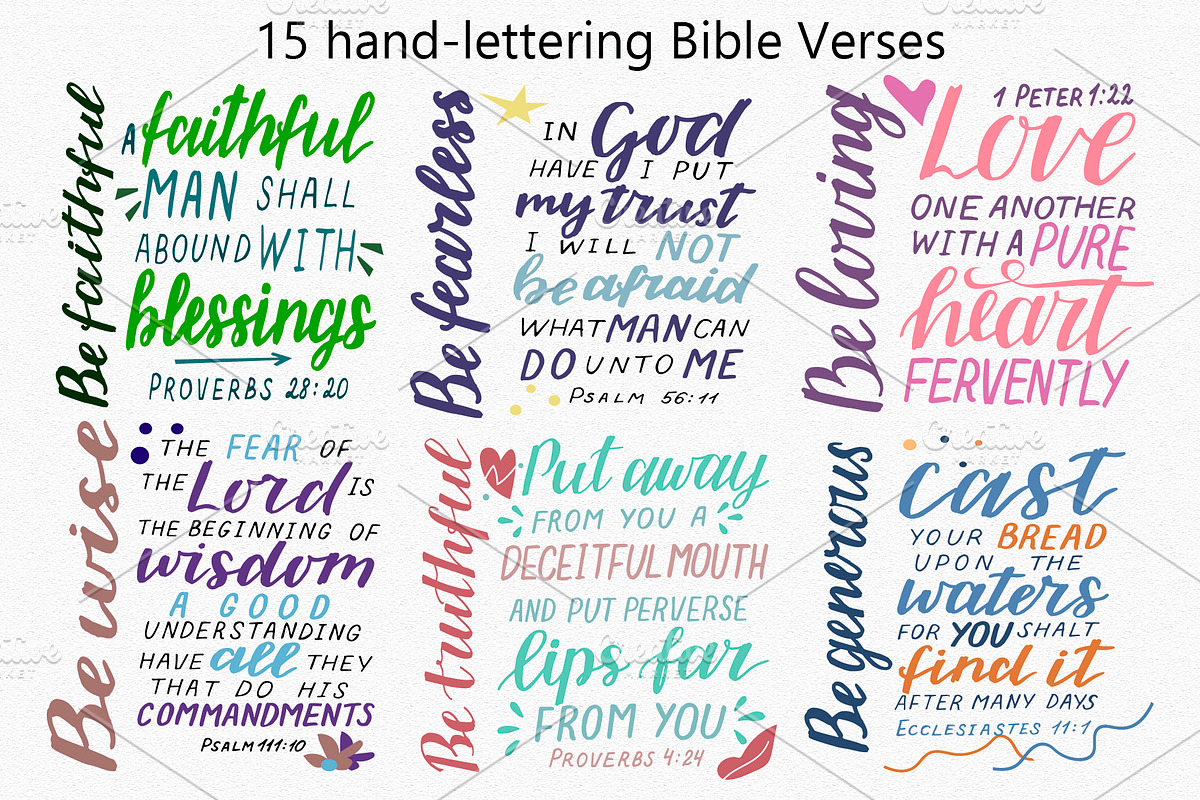 15 hand-lettering Bible Verses
Be faithful
A faithful
MAN SHALL
ABOUND WITH
blessings
PROVERBS 28:20
Be fearless
IN God
HAVE I PUT
my trust
I WILL NOT
be afraid
WHAT MAN CAN
DO UNTO ME
PSALM 56:11
Be loving
1 PETER 1:22
Love
ONE ANOTHER
WITH A PURE
heart
FERVENTLY
Be wise
THE FEAR OF
THE Lord IS
THE BEGINNING OF
wisdom
A GOOD
UNDERSTANDING
HAVE all THEY
THAT DO HIS
COMMANDMENTS
PSALM 111:10
Be truthful
Put away
FROM YOU A
DECEITFUL MOUTH
AND PUT PERVERSE
lips far
FROM YOU
PROVERBS 4:24
Be generous
cast
YOUR BREAD
UPON THE
waters
FOR YOU SHALT
find it
AFTER MANY DAYS
ECCLESIASTES 11:1
Creative
MARKET